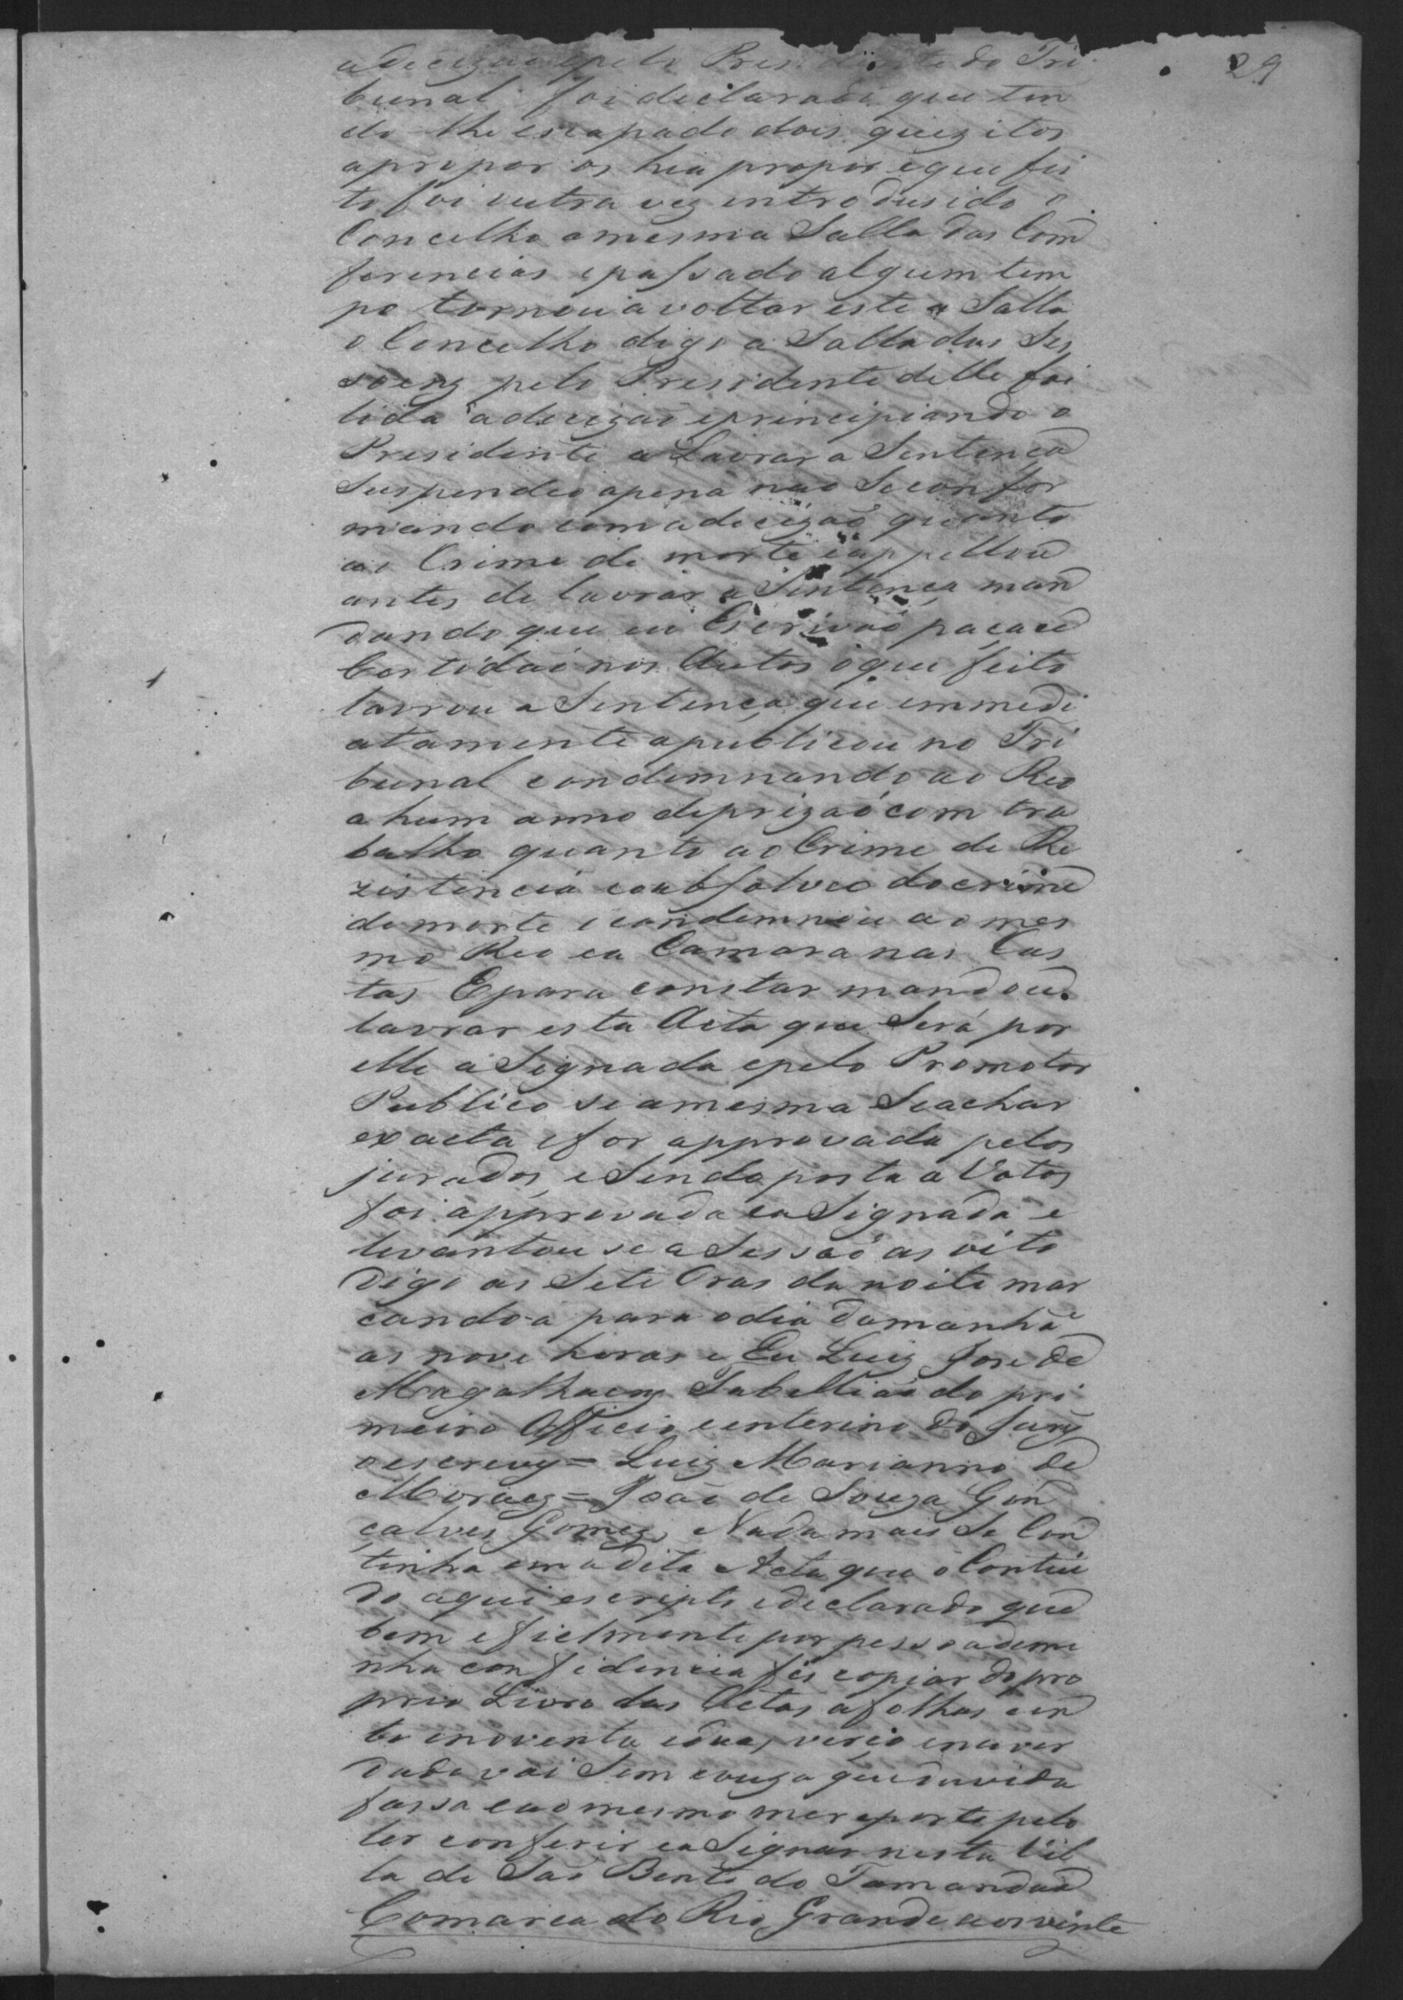 29
a decizaõ e pelo Presidente do Tri
bunal foi declarado que ten
do lhe escapado dois quezitos
a propor os hia propor e que fei
to foi outra vez introdusido o
Concelho a mesma Salla das Com
ferencias e passado algum tem
po tornou a voltar este a Salla
o Concelho digo a Salla das Ses
soens pelo Presidente delle foi
lida a decizaõ e principiando o
Presidente a Lavrar a Sentença
Suspendeo a pena naõ Se confor
mando com a decizaõ quanto
ao Crime de morte e appellou
antes de lavrar a Sentença man
dando que eu Escrivaõ paçace
Certidaõ nos Autos o que feito
lavrou a Sentença que immedi
atamente a publicou no Tri
bunal condemnando ao Reo
a hum anno de prizaõ com tra
balho quanto ao Crime de Re
zistencia e o absolveo do crime
de morte e condemnou ao mes
mo Reo e a Camara nas Cus
tas E para constar mandou
lavrar esta Acta que Será por
elle aSignada e pelo Promotor
Publico se a mesma Se achar
exacta e for approvada pelos
jurados, e Sendo posta a Votos
foi approvada e aSignada e
levantou se a Sessaõ as oito
digo as Sete Oras da noite mar
cando-a para o dia damanhã
as nove horas e Eu Luiz Jose de
Magalhaens Tabelliaõ do pri
meiro Officio e enterino do Jury
o escrevy = Luiz Marianno de
Moraes = João de Souza Gon
çalves Gomes, Nada mais Se Con
tinha em a dita Acta que o Contiu
do aqui escripto e declarado que
bem e fielmente por pessoa de mi
nha confidencia fis copiar do pro
prio Livro das Actas a folhas cen
to e noventa e duas, verso e na ver
dade vai Sem couza que duvida
fassa e ao mesmo me reporto pelo
ler conferir e aSignar nesta Vil
la de Saõ Bento do Tamanduá
Comarca do Rio Grande aos vinte